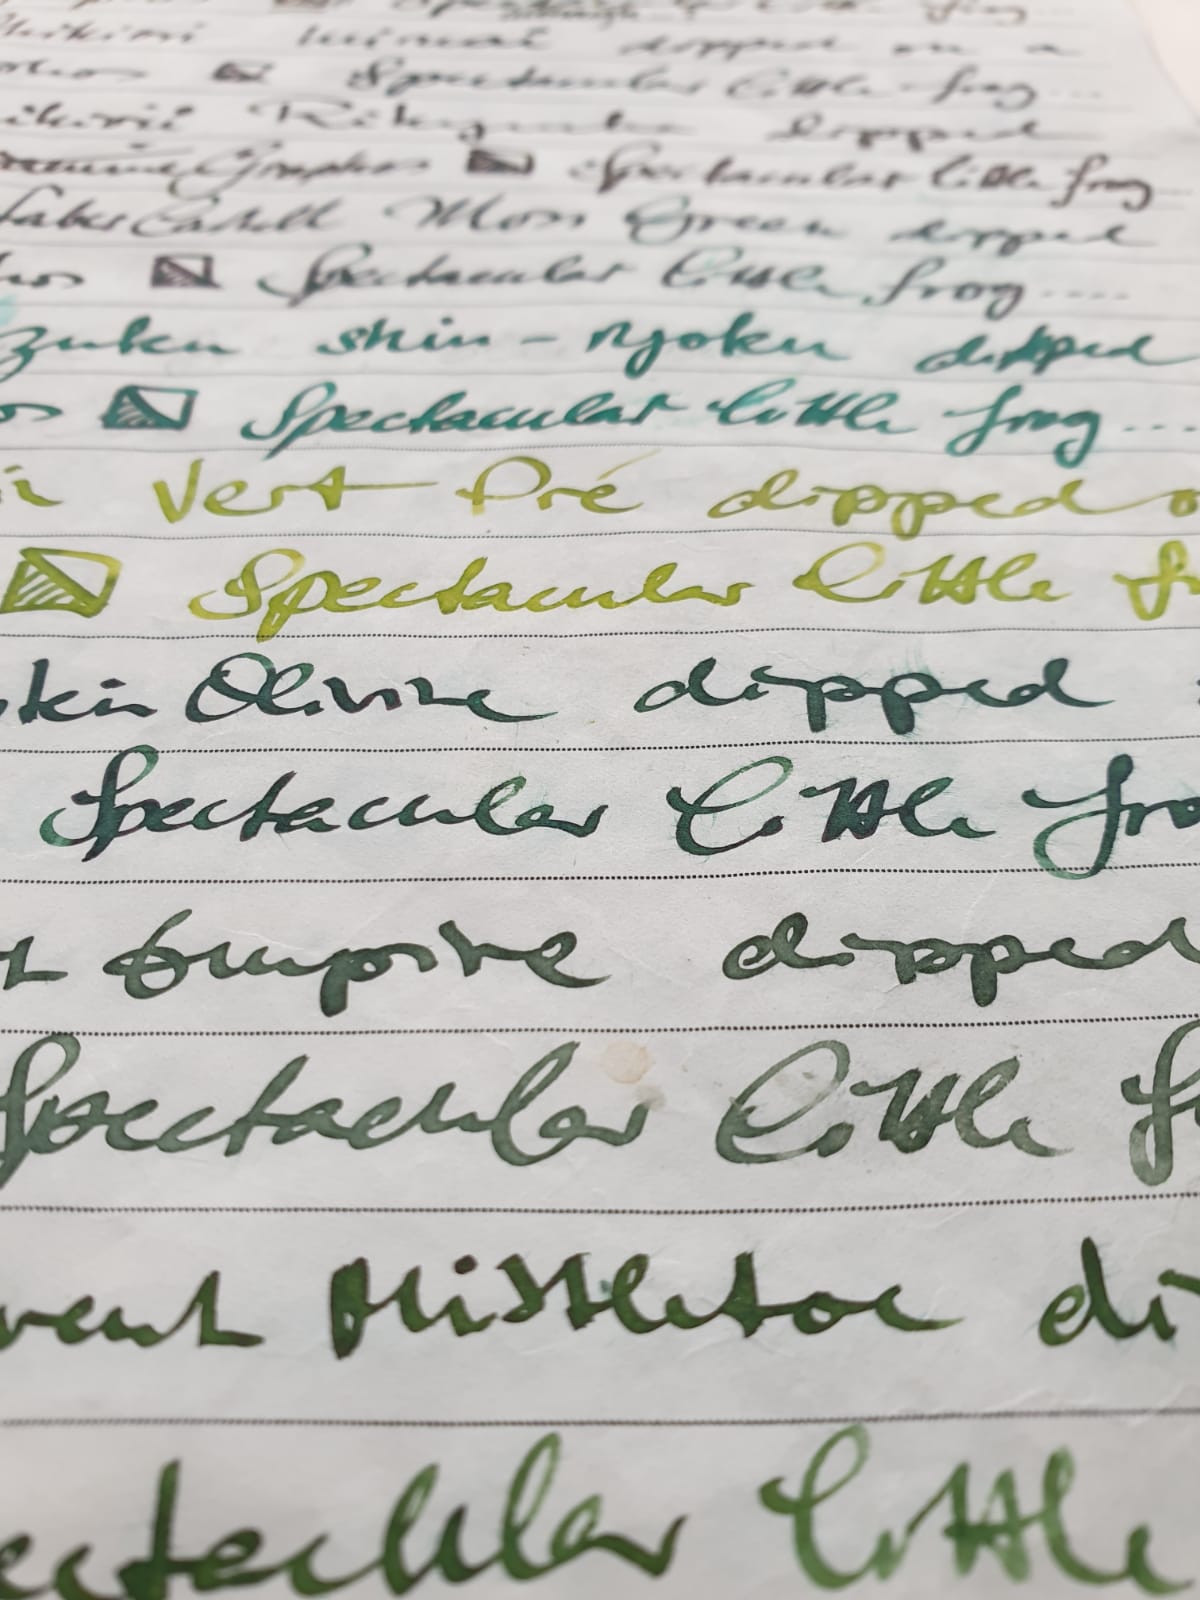 Spectacular little frog...
dipped on a
Spectacular little frog...
dipped
Graphos Spectacular little frog
Faber Castell Moss Green dipped
hos Spectacular little frog....
zuku shin-ryoku dipped
os Spectacular little frog...
Vert Pré dipped o
Spectacular little fr
kin Olivine dipped
Spectacular little fro
Empire dipped
Spectacular little f
vent Mistletoe di
ectacular little